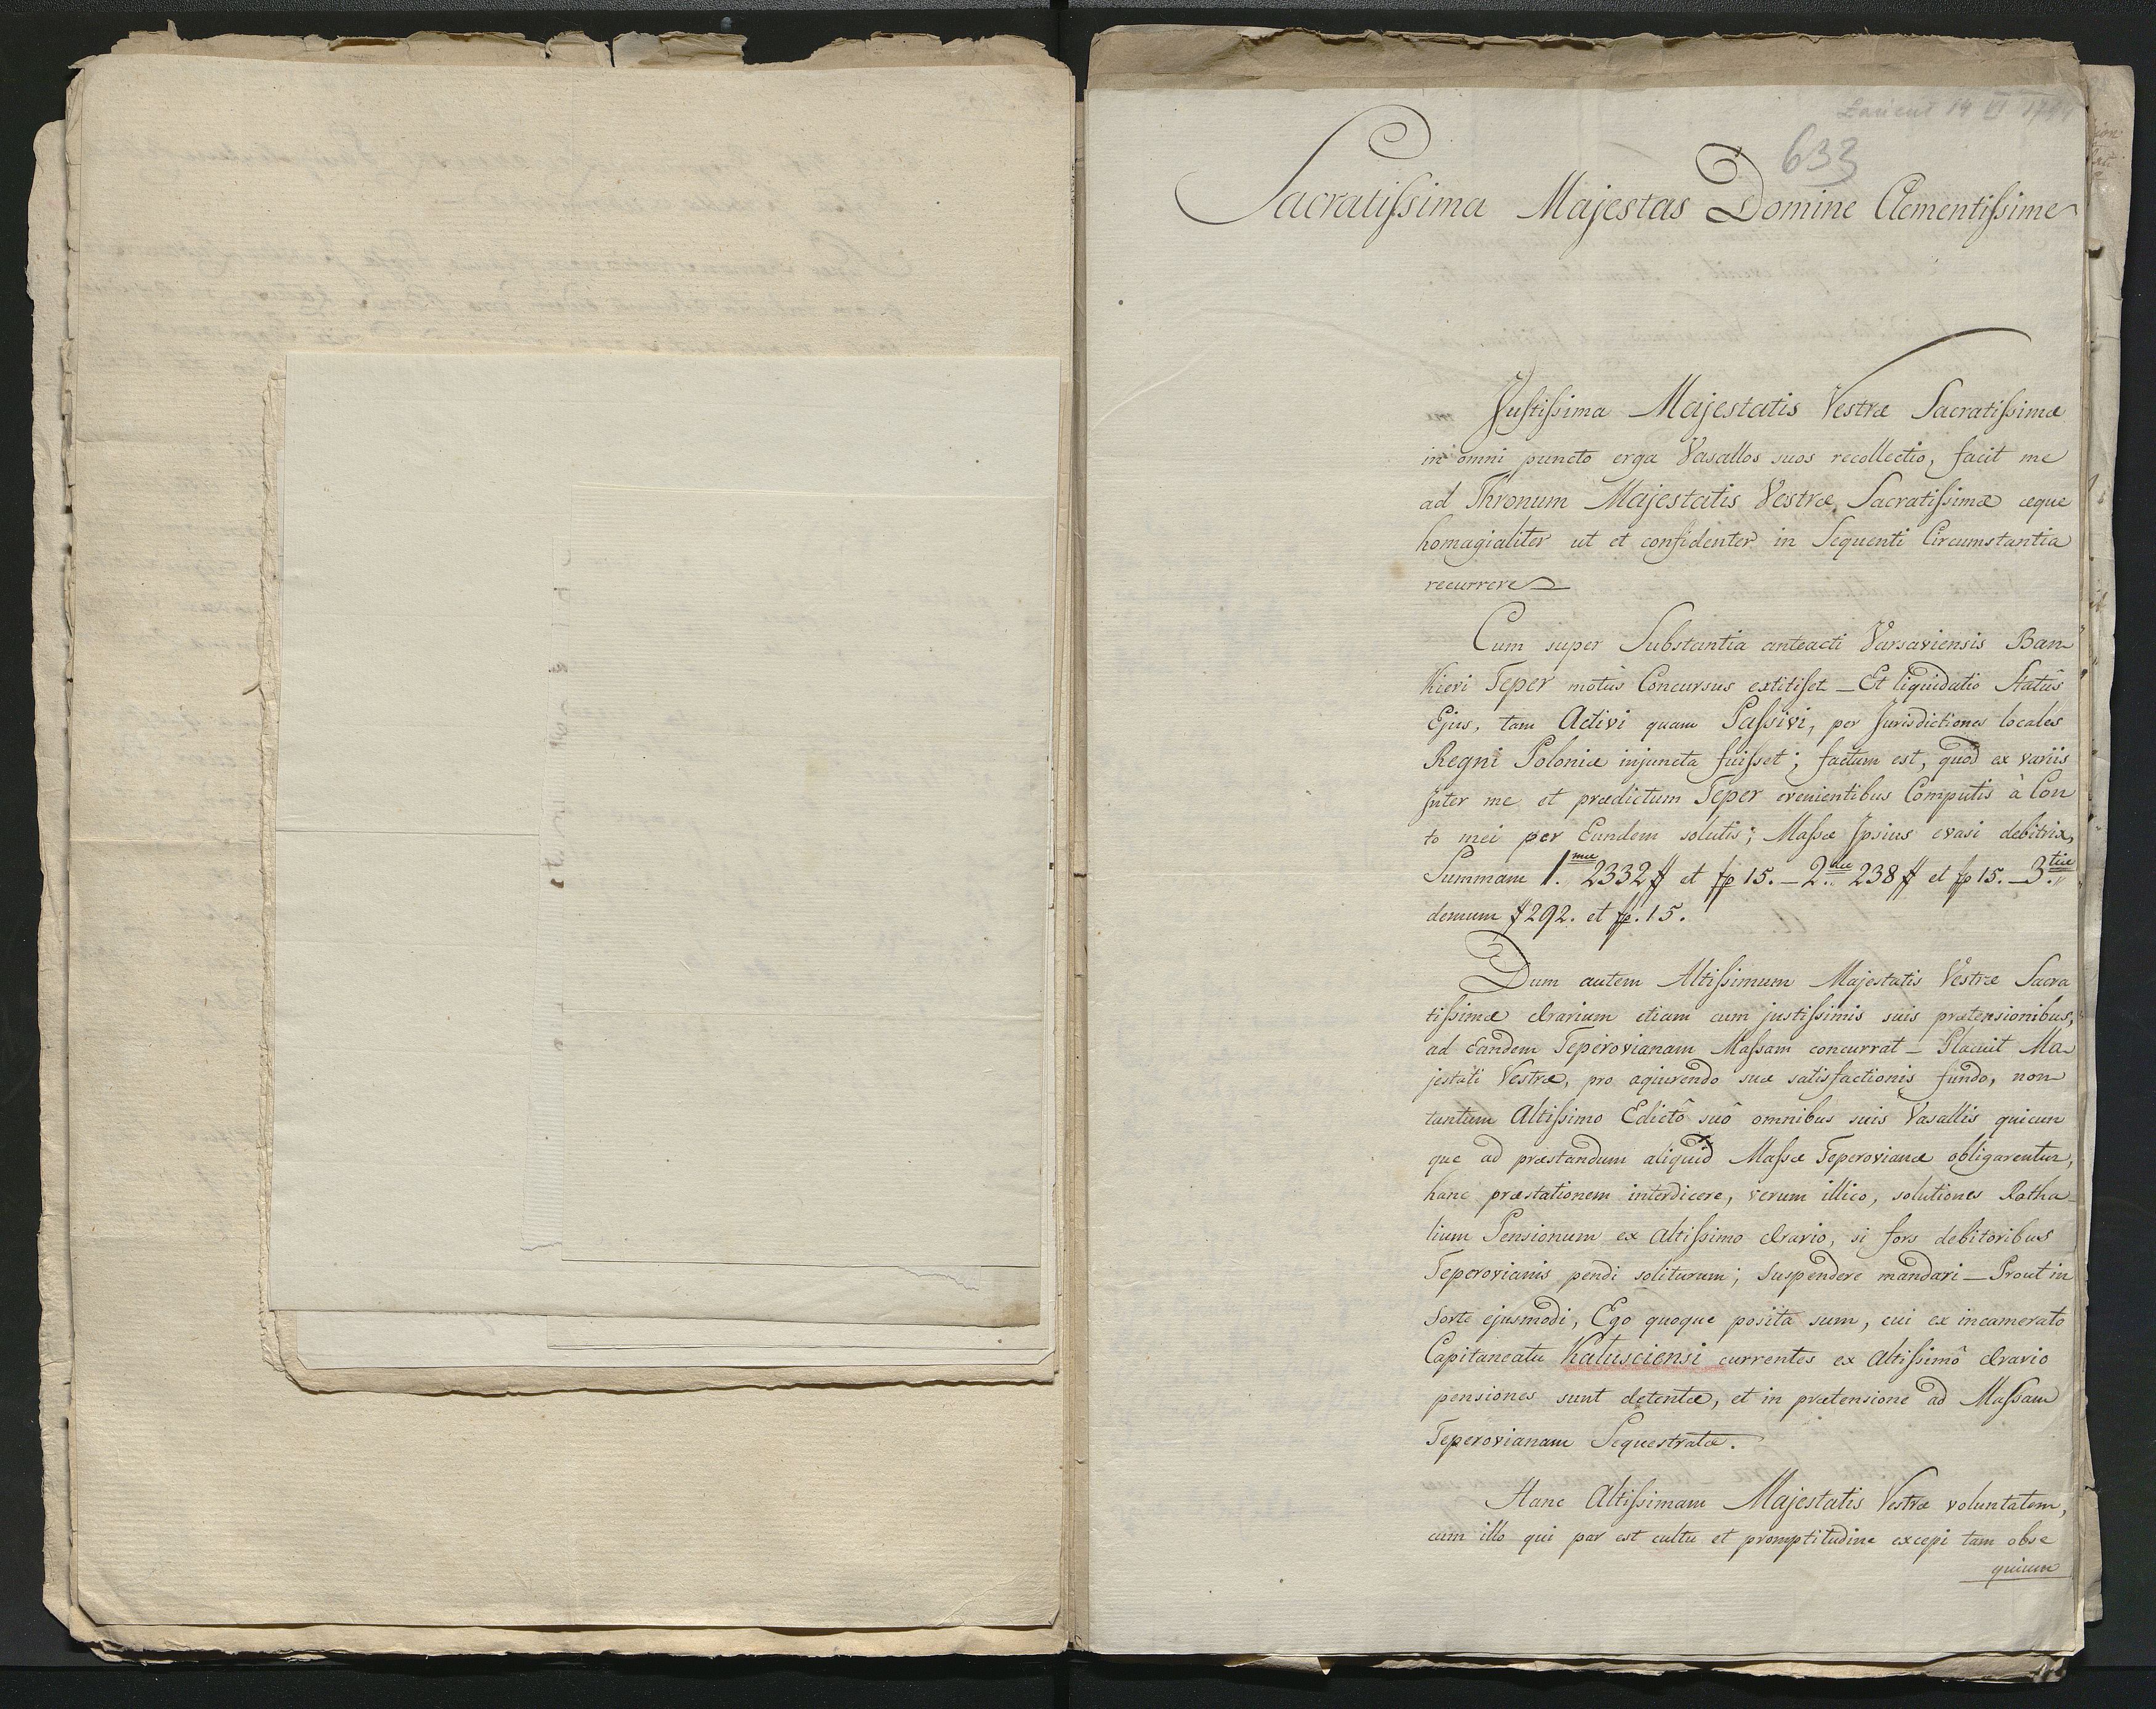 Łańcut 14 VI 1794
633
Sacratissima Majestas Domine Clementissime
Justissima Majestatis Vestræ Sacratissimæ
in omni puncto erga Vasallos suos recollectio, facit me
ad Thronum Majestatis Vestræ Sacratissimæ æque
homagialiter ut et confidenter in Sequenti Circumstantia
recurrere
Cum super Substantia anteacti Varsaviensis Ban
kieri Teper motus Concursus extitisset _ Et liquidatio Statûs
Ejus, tam Activi quam Passivi, per Jurisdictiones locales
Regni Poloniæ injuncta fuisset; factum est, quod ex variis
Inter me et prædictum Teper evenientibus Computis à Con
to mei per Eundem solutis; Massæ Ipsius evasi debitrix,
Summam 1.mæ 2332 # et fp 15. _ 2.dæ 238 # et fp 15. _ 3.tiæ
demum # 292. et fp. 15.
Dum autem Altissimum Majestatis Vestræ Sacra
tissimæ Ærarium etiam cum justissimis suis prætensionibus,
ad Eandem Teperovianam Massam concurrat _ Placuit Ma
jestati Vestræ, pro aqiurendo suæ satisfactionis fundo, non
tantum Altissimo Edictô suô omnibus suis Vasallis quicun
que ad præstandum aliquid Massæ Teperovianæ obligarentur,
hanc præstationem interdicere, verum illico, solutiones Ratha
lium Pensionum ex Altissimo Ærario, si fors debitoribus
Teperovianis pendi soliturum; Suspendere mandari _ Prout in
Sorte ejusmodi, Ego quoque posita sum, cui ex incamerato
Capitaneatu Kalusciensi currentes ex Altissimô Ærario
pensiones sunt detentæ, et in prætensione ad Massam
Teperovianam Sequestratæ.
Hanc Altissimam Majestatis Vestræ voluntatem,
cum illo qui par est cultu et promptitudine excepi tam obse
quium